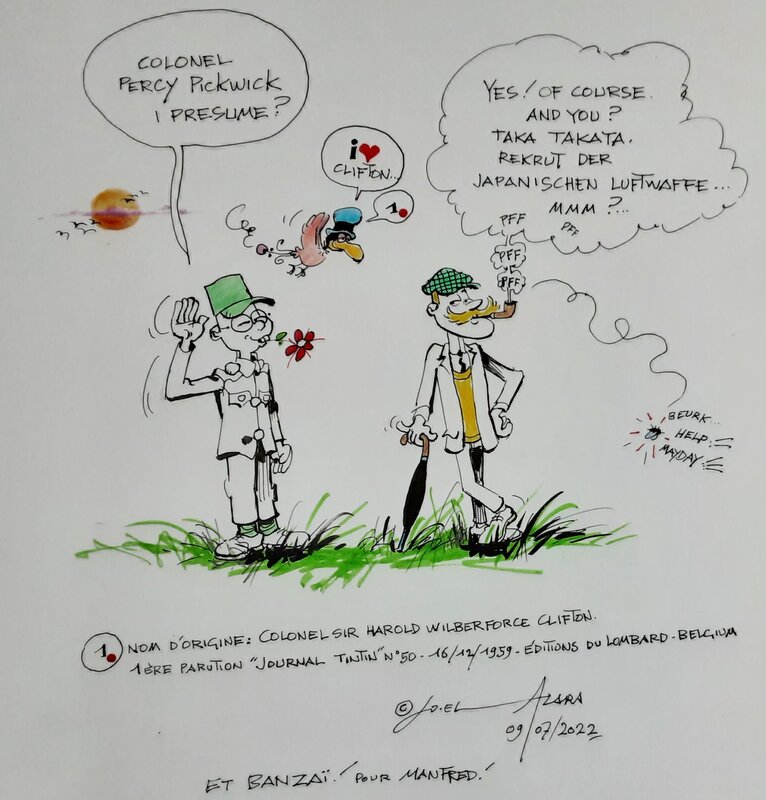 COLONEL
PERCY PICKWICK
I PRESUME?
i ❤
CLIFTON...
1.
YES! OF COURSE.
AND YOU?
TAKA TAKATA.
REKRUT DER
JAPANISCHEN LUFTWAFFE...
MMM?...
PFF
PFF
PFF
PFF
BEURK...
HELP.
MAYDAY.
1. NOM D'ORIGINE: COLONEL SIR HAROLD WILBERFORCE CLIFTON.
1ÈRE PARUTION "JOURNAL TINTIN" N°50 - 16/12/1959 - ÉDITIONS DU LOMBARD - BELGIUM
© JO-EL AZARA
09/07/2022
ET BANZAÏ! POUR MANFRED!